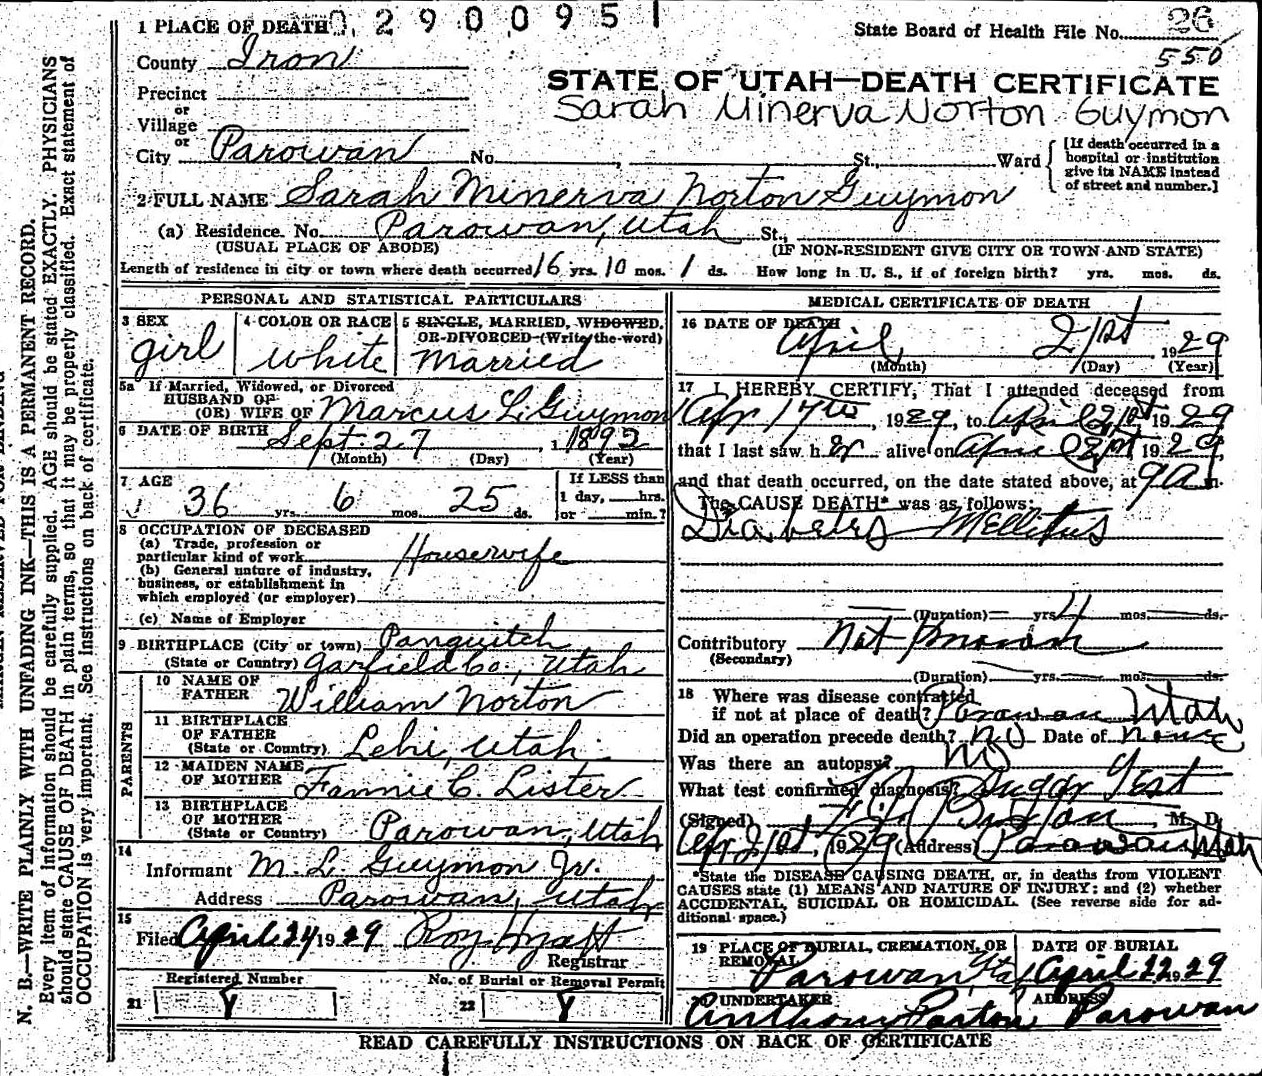 1 PLACE OF DEATH 02900951
State Board of Health File No. 26
550
County Iron
STATE OF UTAH—DEATH CERTIFICATE
Precinct
or
Village
Sarah Minerva Norton Guymon
or
City Parowan No. , St., Ward
[If death occurred in a
hospital or institution
give its NAME instead
of street and number.]
2 FULL NAME Sarah Minerva Norton Guymon
(a) Residence. No. Parowan, Utah St.,
(USUAL PLACE OF ABODE) (IF NON-RESIDENT GIVE CITY OR TOWN AND STATE)
Length of residence in city or town where death occurred 16 yrs. 10 mos. 1 ds. How long in U. S., if of foreign birth? yrs. mos. ds.
PERSONAL AND STATISTICAL PARTICULARS
3 SEX
girl
4 COLOR OR RACE
White
5 SINGLE, MARRIED, WIDOWED,
OR DIVORCED (Write the word)
Married
5a If Married, Widowed, or Divorced
HUSBAND OF
(OR) WIFE OF Marcus L. Guymon
6 DATE OF BIRTH Sept 27, 1892
(Month) (Day) (Year)
7 AGE
36 yrs. 6 mos. 25 ds.
If LESS than
1 day, hrs.
or min.?
8 OCCUPATION OF DECEASED
(a) Trade, profession or
particular kind of work Housewife
(b) General nature of industry,
business, or establishment in
which employed (or employer)
(c) Name of Employer
9 BIRTHPLACE (City or town) Panguitch
(State or Country) Garfield Co., Utah
PARENTS
10 NAME OF
FATHER William Norton
11 BIRTHPLACE
OF FATHER
(State or Country) Lehi, Utah
12 MAIDEN NAME
OF MOTHER Fannie C. Lister
13 BIRTHPLACE
OF MOTHER
(State or Country) Parowan, Utah
14
Informant M. L. Guymon Jr.
Address Parowan, Utah
15
Filed April 24 1929 Roy Hyatt
Registrar
Registered Number No. of Burial or Removal Permit
21 Y 22 Y
MEDICAL CERTIFICATE OF DEATH
16 DATE OF DEATH
April 21st, 1929
(Month) (Day) (Year)
17 I HEREBY CERTIFY, That I attended deceased from
Apr 17th, 1929, to April 21st 1929
that I last saw her alive on April 21st 1929,
and that death occurred, on the date stated above, at 9 A m.
The CAUSE DEATH* was as follows:
Diabetes Mellitus
(Duration) yrs. 4 mos. ds.
Contributory Not Known
(Secondary)
(Duration) yrs. mos. ds.
18 Where was disease contracted
if not at place of death? Parowan Utah
Did an operation precede death? No Date of none
Was there an autopsy? No
What test confirmed diagnosis? Sugar Test
(Signed) M. D.
Apr 21st, 1929 (Address) Parowan Utah
*State the DISEASE CAUSING DEATH, or, in deaths from VIOLENT
CAUSES state (1) MEANS AND NATURE OF INJURY: and (2) whether
ACCIDENTAL, SUICIDAL OR HOMICIDAL. (See reverse side for ad-
ditional space.)
19 PLACE OF BURIAL, CREMATION, OR
REMOVAL
Parowan, Utah
DATE OF BURIAL
April 22 1929
20 UNDERTAKER
Anthony Paxton
ADDRESS
Parowan
READ CAREFULLY INSTRUCTIONS ON BACK OF CERTIFICATE
N. B.—WRITE PLAINLY WITH UNFADING INK—THIS IS A PERMANENT RECORD.
Every item of information should be carefully supplied. AGE should be stated EXACTLY. PHYSICIANS
should state CAUSE OF DEATH in plain terms, so that it may be properly classified. Exact statement of
OCCUPATION is very important. See Instructions on back of certificate.